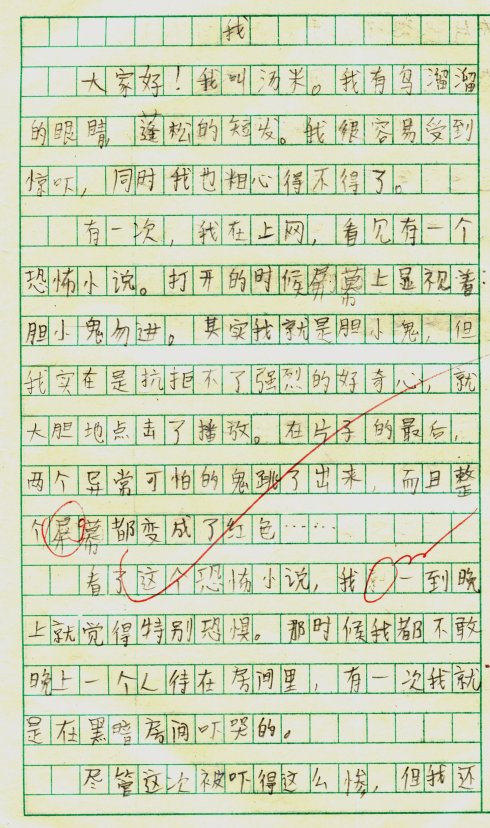 我
大家好！我叫汤米。我有乌溜溜
的眼睛，蓬松的短发。我很容易受到
惊吓，同时我也粗心得不得了。
有一次，我在上网，看见有一个
恐怖小说。打开的时候屏幕上显视着：
胆小鬼勿进。其实我就是胆小鬼，但
我实在是抗拒不了强烈的好奇心，就
大胆地点击了播放。在片子的最后，
两个异常可怕的鬼跳了出来，而且整
个屏幕都变成了红色……
看了这个恐怖小说，我一到晚
上就觉得特别恐惧。那时候我都不敢
晚上一个人待在房间里，有一次我就
是在黑暗房间吓哭的。
尽管这次被吓得这么惨，但我还